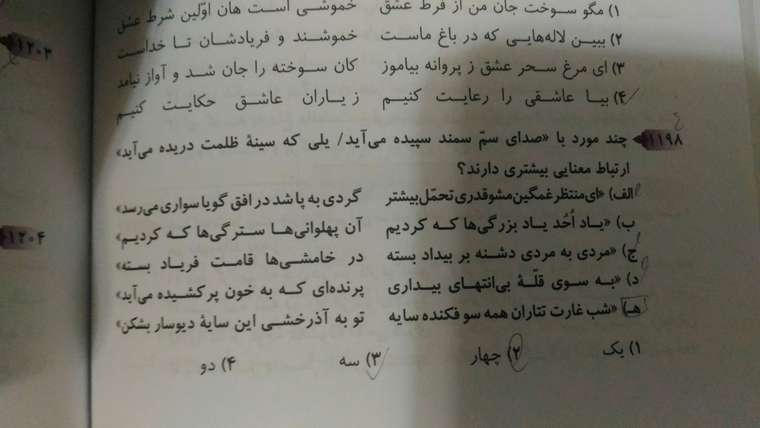 ۱) مگو سوخت جان من از فرط عشق خموشی است هان اوّلین شرط عشق
۲) ببین لاله‌هایی که در باغ ماست خموشند و فریادشان تا خداست
۳) ای مرغ سحر عشق ز پروانه بیاموز کان سوخته را جان شد و آواز نیامد
۴) بیا عاشقی را رعایت کنیم ز یاران عاشق حکایت کنیم
۱۱۹۸ چند مورد با «صدای سمّ سمند سپیده می‌آید/ یلی که سینهٔ ظلمت دریده می‌آید»
ارتباط معنایی بیشتری دارند؟
الف) «ای منتظر غمگین مشو قدری تحمّل بیشتر گردی به پا شد در افق گویا سواری می‌رسد»
ب) «یاد اُحُد یاد بزرگی‌ها که کردیم آن پهلوانی‌ها سترگی‌ها که کردیم»
ج) «مردی به مردی دشنه بر بیداد بسته در خامشی‌ها قامت فریاد بسته»
د) «به سوی قلّهٔ بی‌انتهای بیداری پرنده‌ای که به خون پر کشیده می‌آید»
هـ) «شب غارت تتاران همه سو فکنده سایه تو به آذرخشی این سایهٔ دیوسار بشکن»
۱) یک ۲) چهار ۳) سه ۴) دو
۱۲۰۳
۱۲۰۴